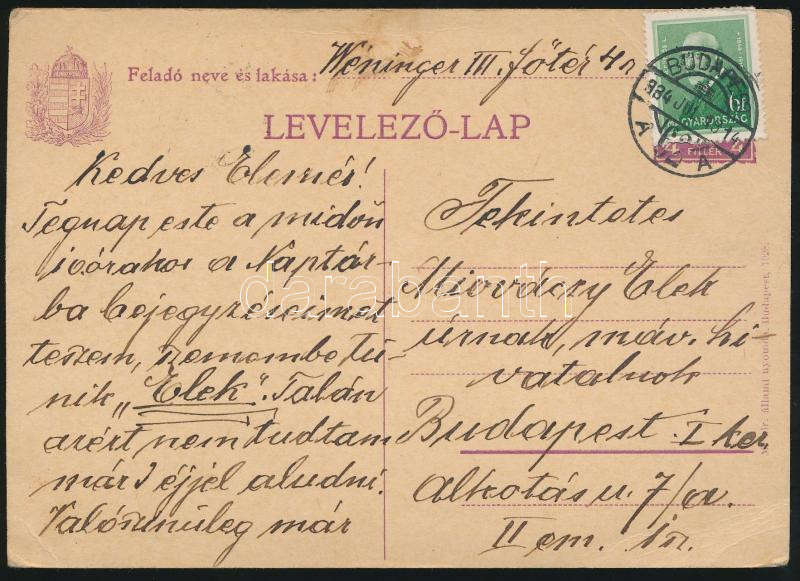 Feladó neve és lakása: Wéninger III. főtér 4a
LEVELEZŐ-LAP
BUDAPEST
MAGYARORSZÁG
FILLÉR
Kedves Elemér!
Tegnap este a midőn
ivórakor a Naptár-
ba bejegyzéseimet
teszem, szemembe tű-
nik „Elek". Talán
azért nem tudtam
már 3 éjjel aludni.
Valószinűleg már
Tekintetes
Miováczy Elek
úrnak, máv. hi-
vatalnok
Budapest I ker.
Alkotás u. 7/a.
II em. in.
Magyar állami nyomda, Budapest, 1928.
darabanth